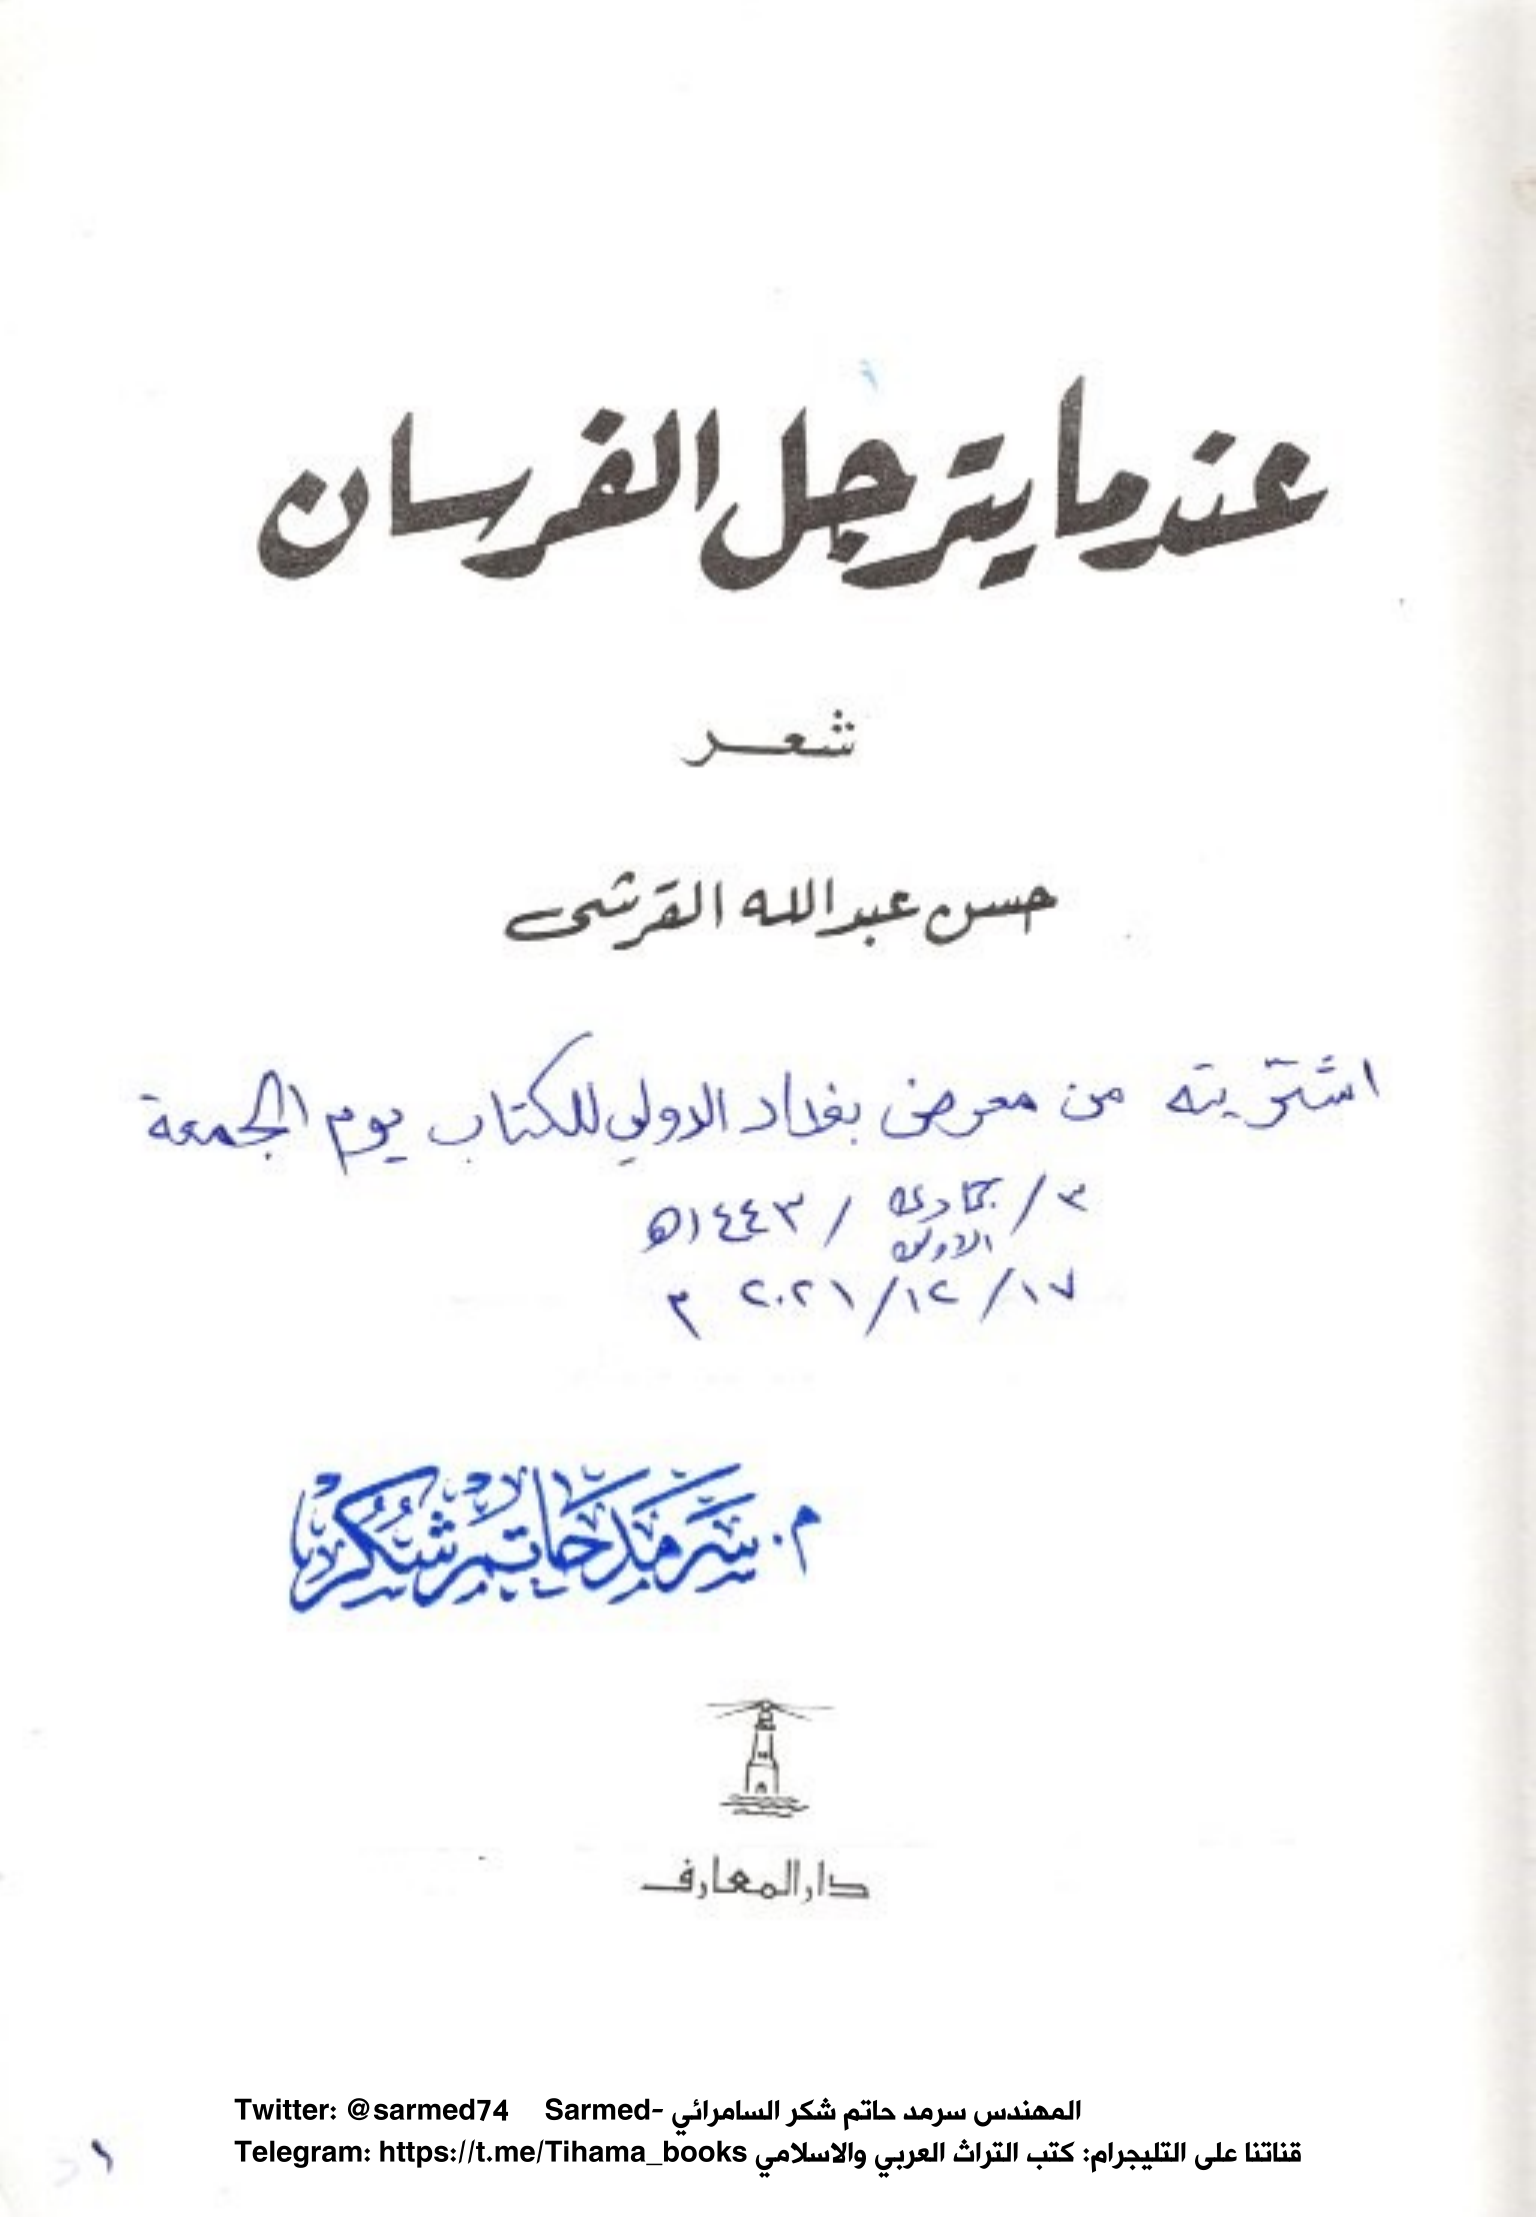 عندما يترجل الفرسان
شعر
حسن عبد الله القرشى
اشتريته من معرض بغداد الدولي للكتاب يوم الجمعة
٣ / جمادى الأولى / ١٤٤٣هـ
١٧ / ١٢ / ٢٠٢١ م
م. سَرْمَدْ حَاتِمْ شُكُرْ
دار المعارف
Twitter: @sarmed74 Sarmed- المهندس سرمد حاتم شكر السامرائي
Telegram: https://t.me/Tihama_books قناتنا على التليجرام: كتب التراث العربي والاسلامي